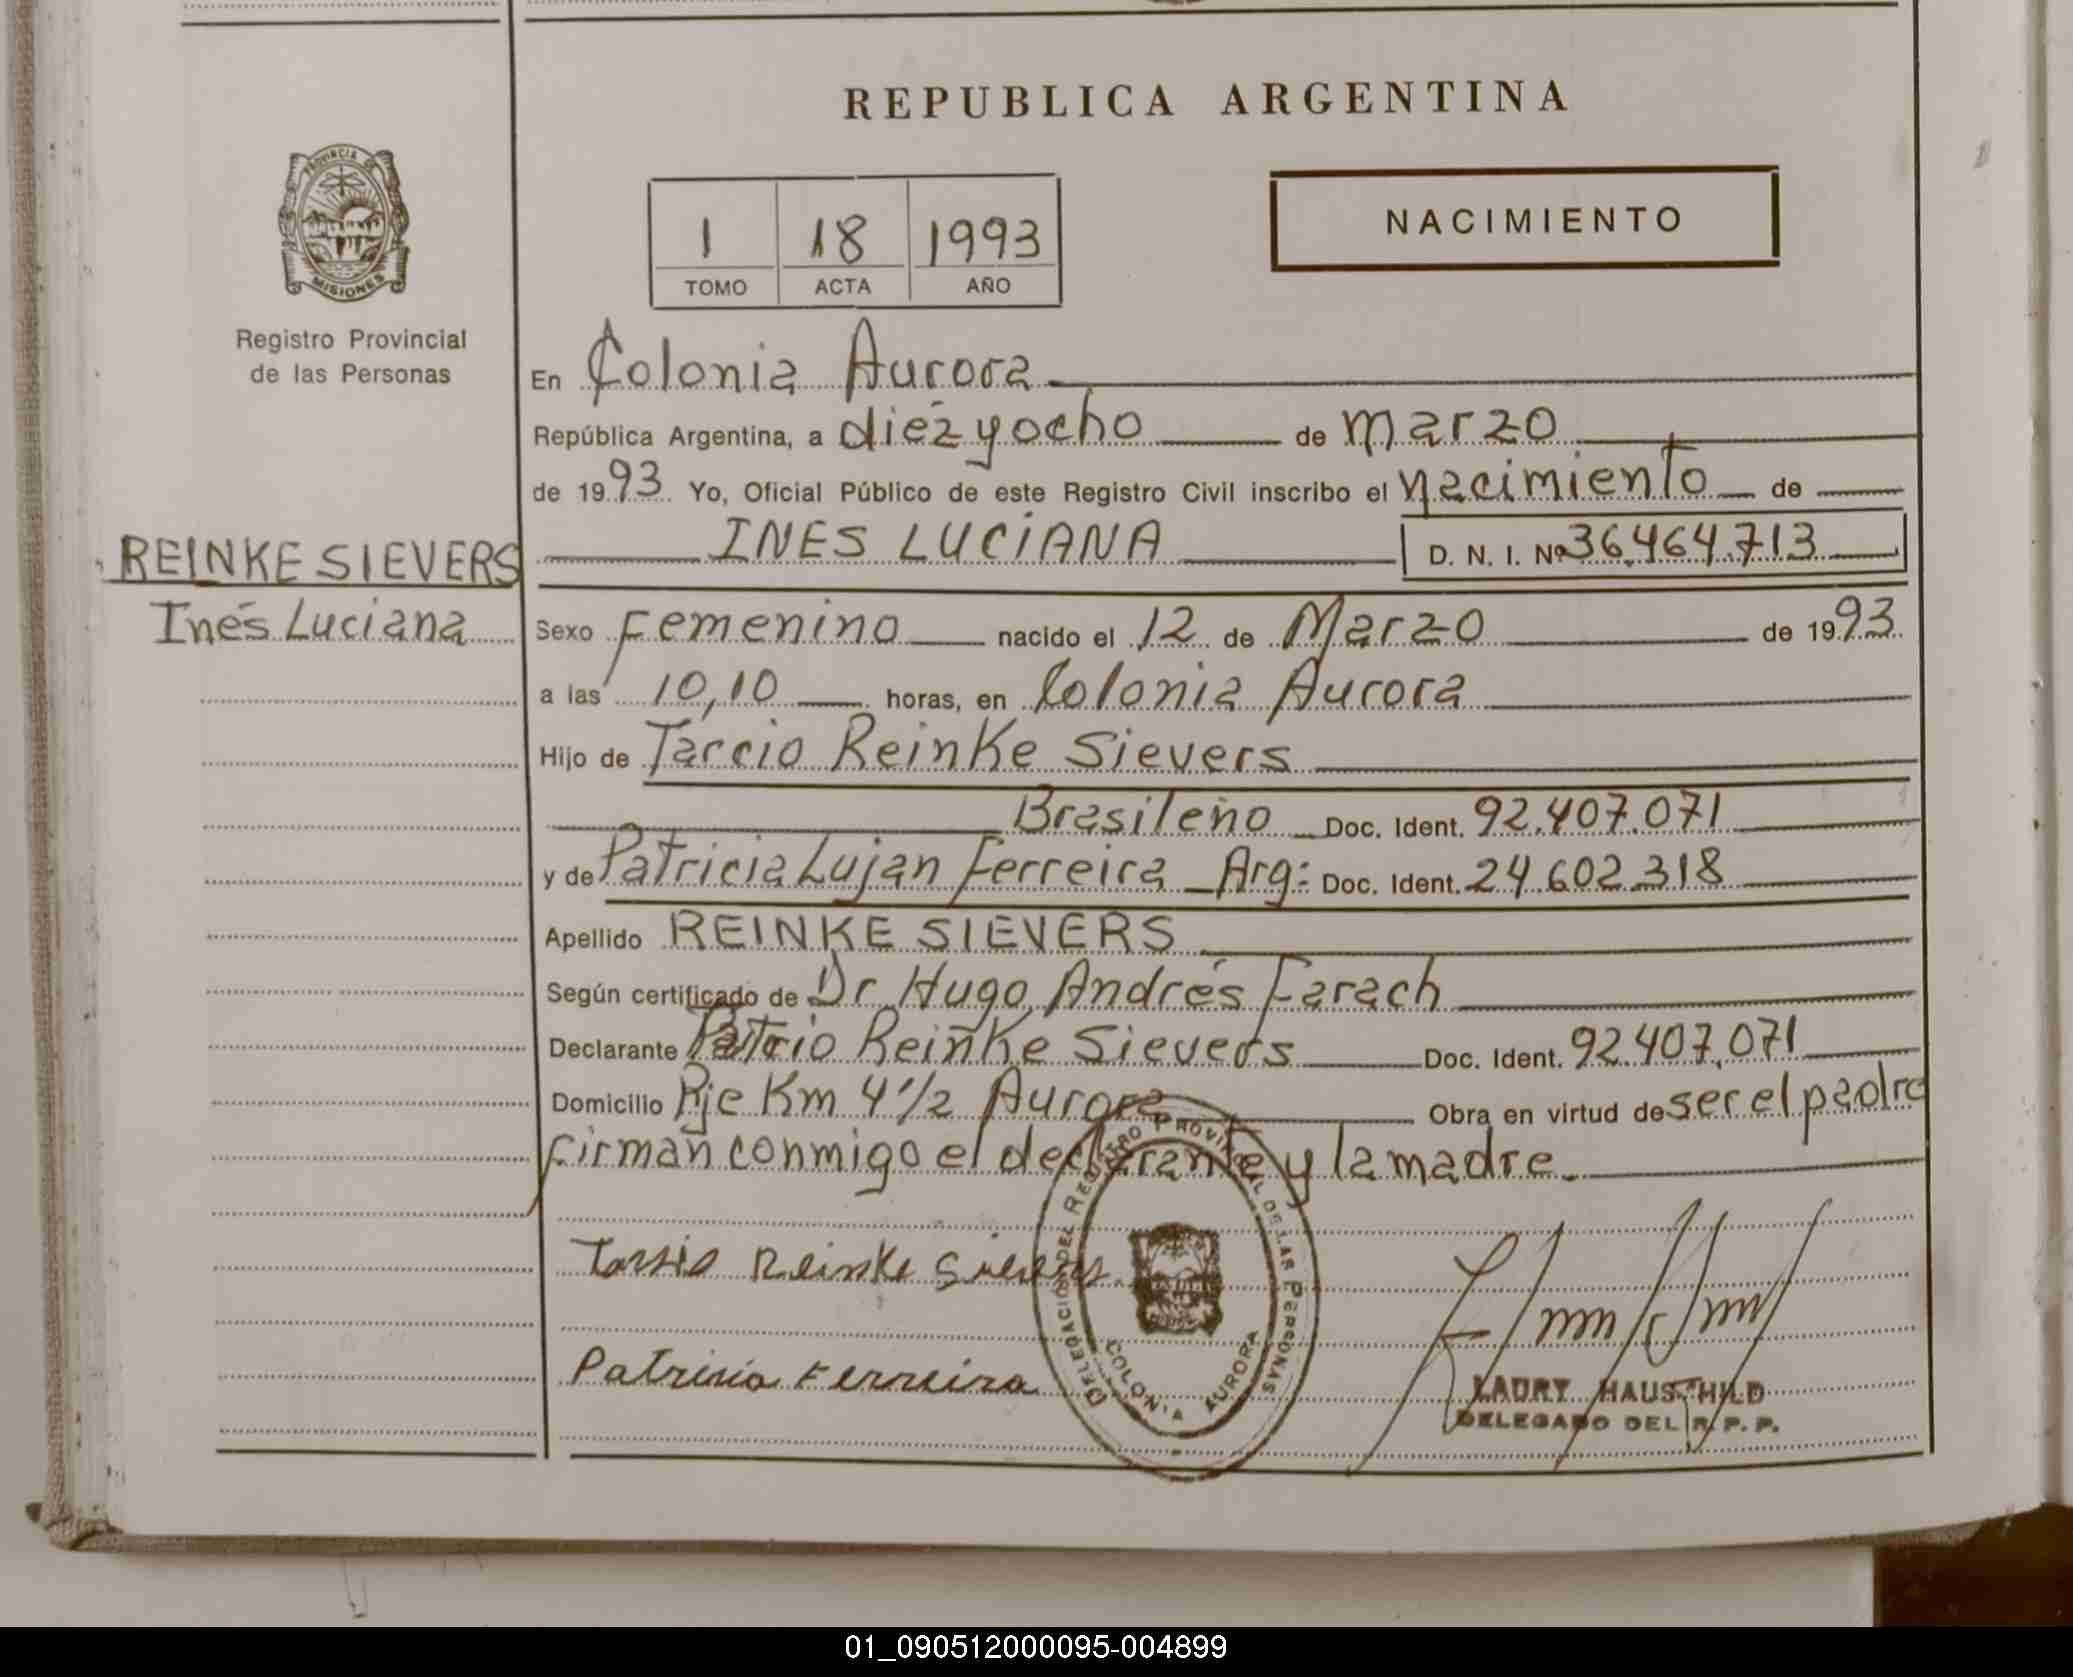 REPUBLICA ARGENTINA
PROVINCIA DE
MISIONES
Registro Provincial
de las Personas
1 18 1993
TOMO ACTA AÑO
NACIMIENTO
En Colonia Aurora
República Argentina, a diez y ocho de Marzo
de 1993 Yo, Oficial Público de este Registro Civil inscribo el nacimiento de
REINKE SIEVERS
Inés Luciana
INES LUCIANA D. N. I. Nº 36.464.713
Sexo Femenino nacido el 12 de Marzo de 1993
a las 10,10 horas, en Colonia Aurora
Hijo de Tarcio Reinke Sievers
Brasileño Doc. Ident. 92.407.071
y de Patricia Lujan Ferreira Arg: Doc. Ident. 24.602.318
Apellido REINKE SIEVERS
Según certificado de Dr Hugo Andrés Farach
Declarante Reinke Sievers Doc. Ident. 92.407.071
Domicilio Pje Km 4 1/2 Aurora Obra en virtud de ser el padre
firman conmigo el declarante y la madre.
Tarsio Reinke Sievers
Patricia Ferreira
DELEGACIÓN DEL REGISTRO PROVINCIAL DE LAS PERSONAS
COLONIA AURORA
LAURY HAUSCHILD
DELEGADO DEL R. P. P.
01_090512000095-004899